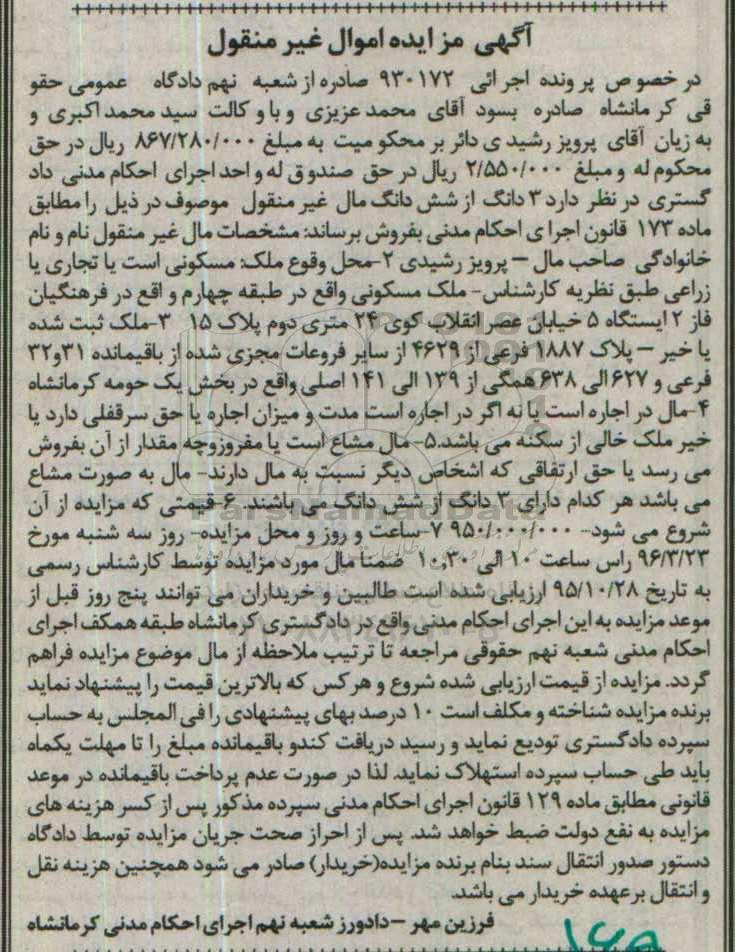 آگهی مزایده اموال غیر منقول
در خصوص پرونده اجرائی ۹۳۰۱۷۲ صادره از شعبه نهم دادگاه عمومی حقو
قی کرمانشاه صادره بسود آقای محمد عزیزی و با وکالت سید محمد اکبری و
به زیان آقای پرویز رشیدی دائر بر محکومیت به مبلغ ۸۶۷/۲۸۰/۰۰۰ ریال در حق
محکوم له و مبلغ ۲/۵۵۰/۰۰۰ ریال در حق صندوق له واحد اجرای احکام مدنی داد
گستری در نظر دارد ۳ دانگ از شش دانگ مال غیر منقول موصوف در ذیل را مطابق
ماده ۱۷۳ قانون اجرای احکام مدنی بفروش برساند: مشخصات مال غیر منقول نام و نام
خانوادگی صاحب مال – پرویز رشیدی ۲-محل وقوع ملک: مسکونی است یا تجاری یا
زراعی طبق نظریه کارشناس- ملک مسکونی واقع در طبقه چهارم واقع در فرهنگیان
فاز ۲ ایستگاه ۵ خیابان عصر انقلاب کوی ۲۴ متری دوم پلاک ۱۵ ۳-ملک ثبت شده
یا خیر – پلاک ۱۸۸۷ فرعی از ۴۶۲۹ از سایر فروعات مجزی شده از باقیمانده ۳۱و۳۲
فرعی و ۶۲۷ الی ۶۳۸ همگی از ۱۳۹ الی ۱۴۱ اصلی واقع در بخش یک حومه کرمانشاه
۴-مال در اجاره است یا نه اگر در اجاره است مدت و میزان اجاره یا حق سرقفلی دارد یا
خیر ملک خالی از سکنه می باشد.۵- مال مشاع است یا مفروزوچه مقدار از آن بفروش
می رسد یا حق ارتفاقی که اشخاص دیگر نسبت به مال دارند- مال به صورت مشاع
می باشد هر کدام دارای ۳ دانگ از شش دانگ می باشند. ۶-قیمتی که مزایده از آن
شروع می شود- ۹۵۰/۰۰۰/۰۰۰ ۷-ساعت و روز و محل مزایده- روز سه شنبه مورخ
۹۶/۳/۲۳ راس ساعت ۱۰ الی ۱۰,۳۰ ضمنا مال مورد مزایده توسط کارشناس رسمی
به تاریخ ۹۵/۱۰/۲۸ ارزیابی شده است طالبین و خریداران می توانند پنج روز قبل از
موعد مزایده به این اجرای احکام مدنی واقع در دادگستری کرمانشاه طبقه همکف اجرای
احکام مدنی شعبه نهم حقوقی مراجعه تا ترتیب ملاحظه از مال موضوع مزایده فراهم
گردد. مزایده از قیمت ارزیابی شده شروع و هرکس که بالاترین قیمت را پیشنهاد نماید
برنده مزایده شناخته و مکلف است ۱۰ درصد بهای پیشنهادی را فی المجلس به حساب
سپرده دادگستری تودیع نماید و رسید دریافت کندو باقیمانده مبلغ را تا مهلت یکماه
باید طی حساب سپرده استهلاک نماید. لذا در صورت عدم پرداخت باقیمانده در موعد
قانونی مطابق ماده ۱۲۹ قانون اجرای احکام مدنی سپرده مذکور پس از کسر هزینه های
مزایده به نفع دولت ضبط خواهد شد. پس از احراز صحت جریان مزایده توسط دادگاه
دستور صدور انتقال سند بنام برنده مزایده(خریدار) صادر می شود همچنین هزینه نقل
و انتقال برعهده خریدار می باشد.
فرزین مهر –دادورز شعبه نهم اجرای احکام مدنی کرمانشاه